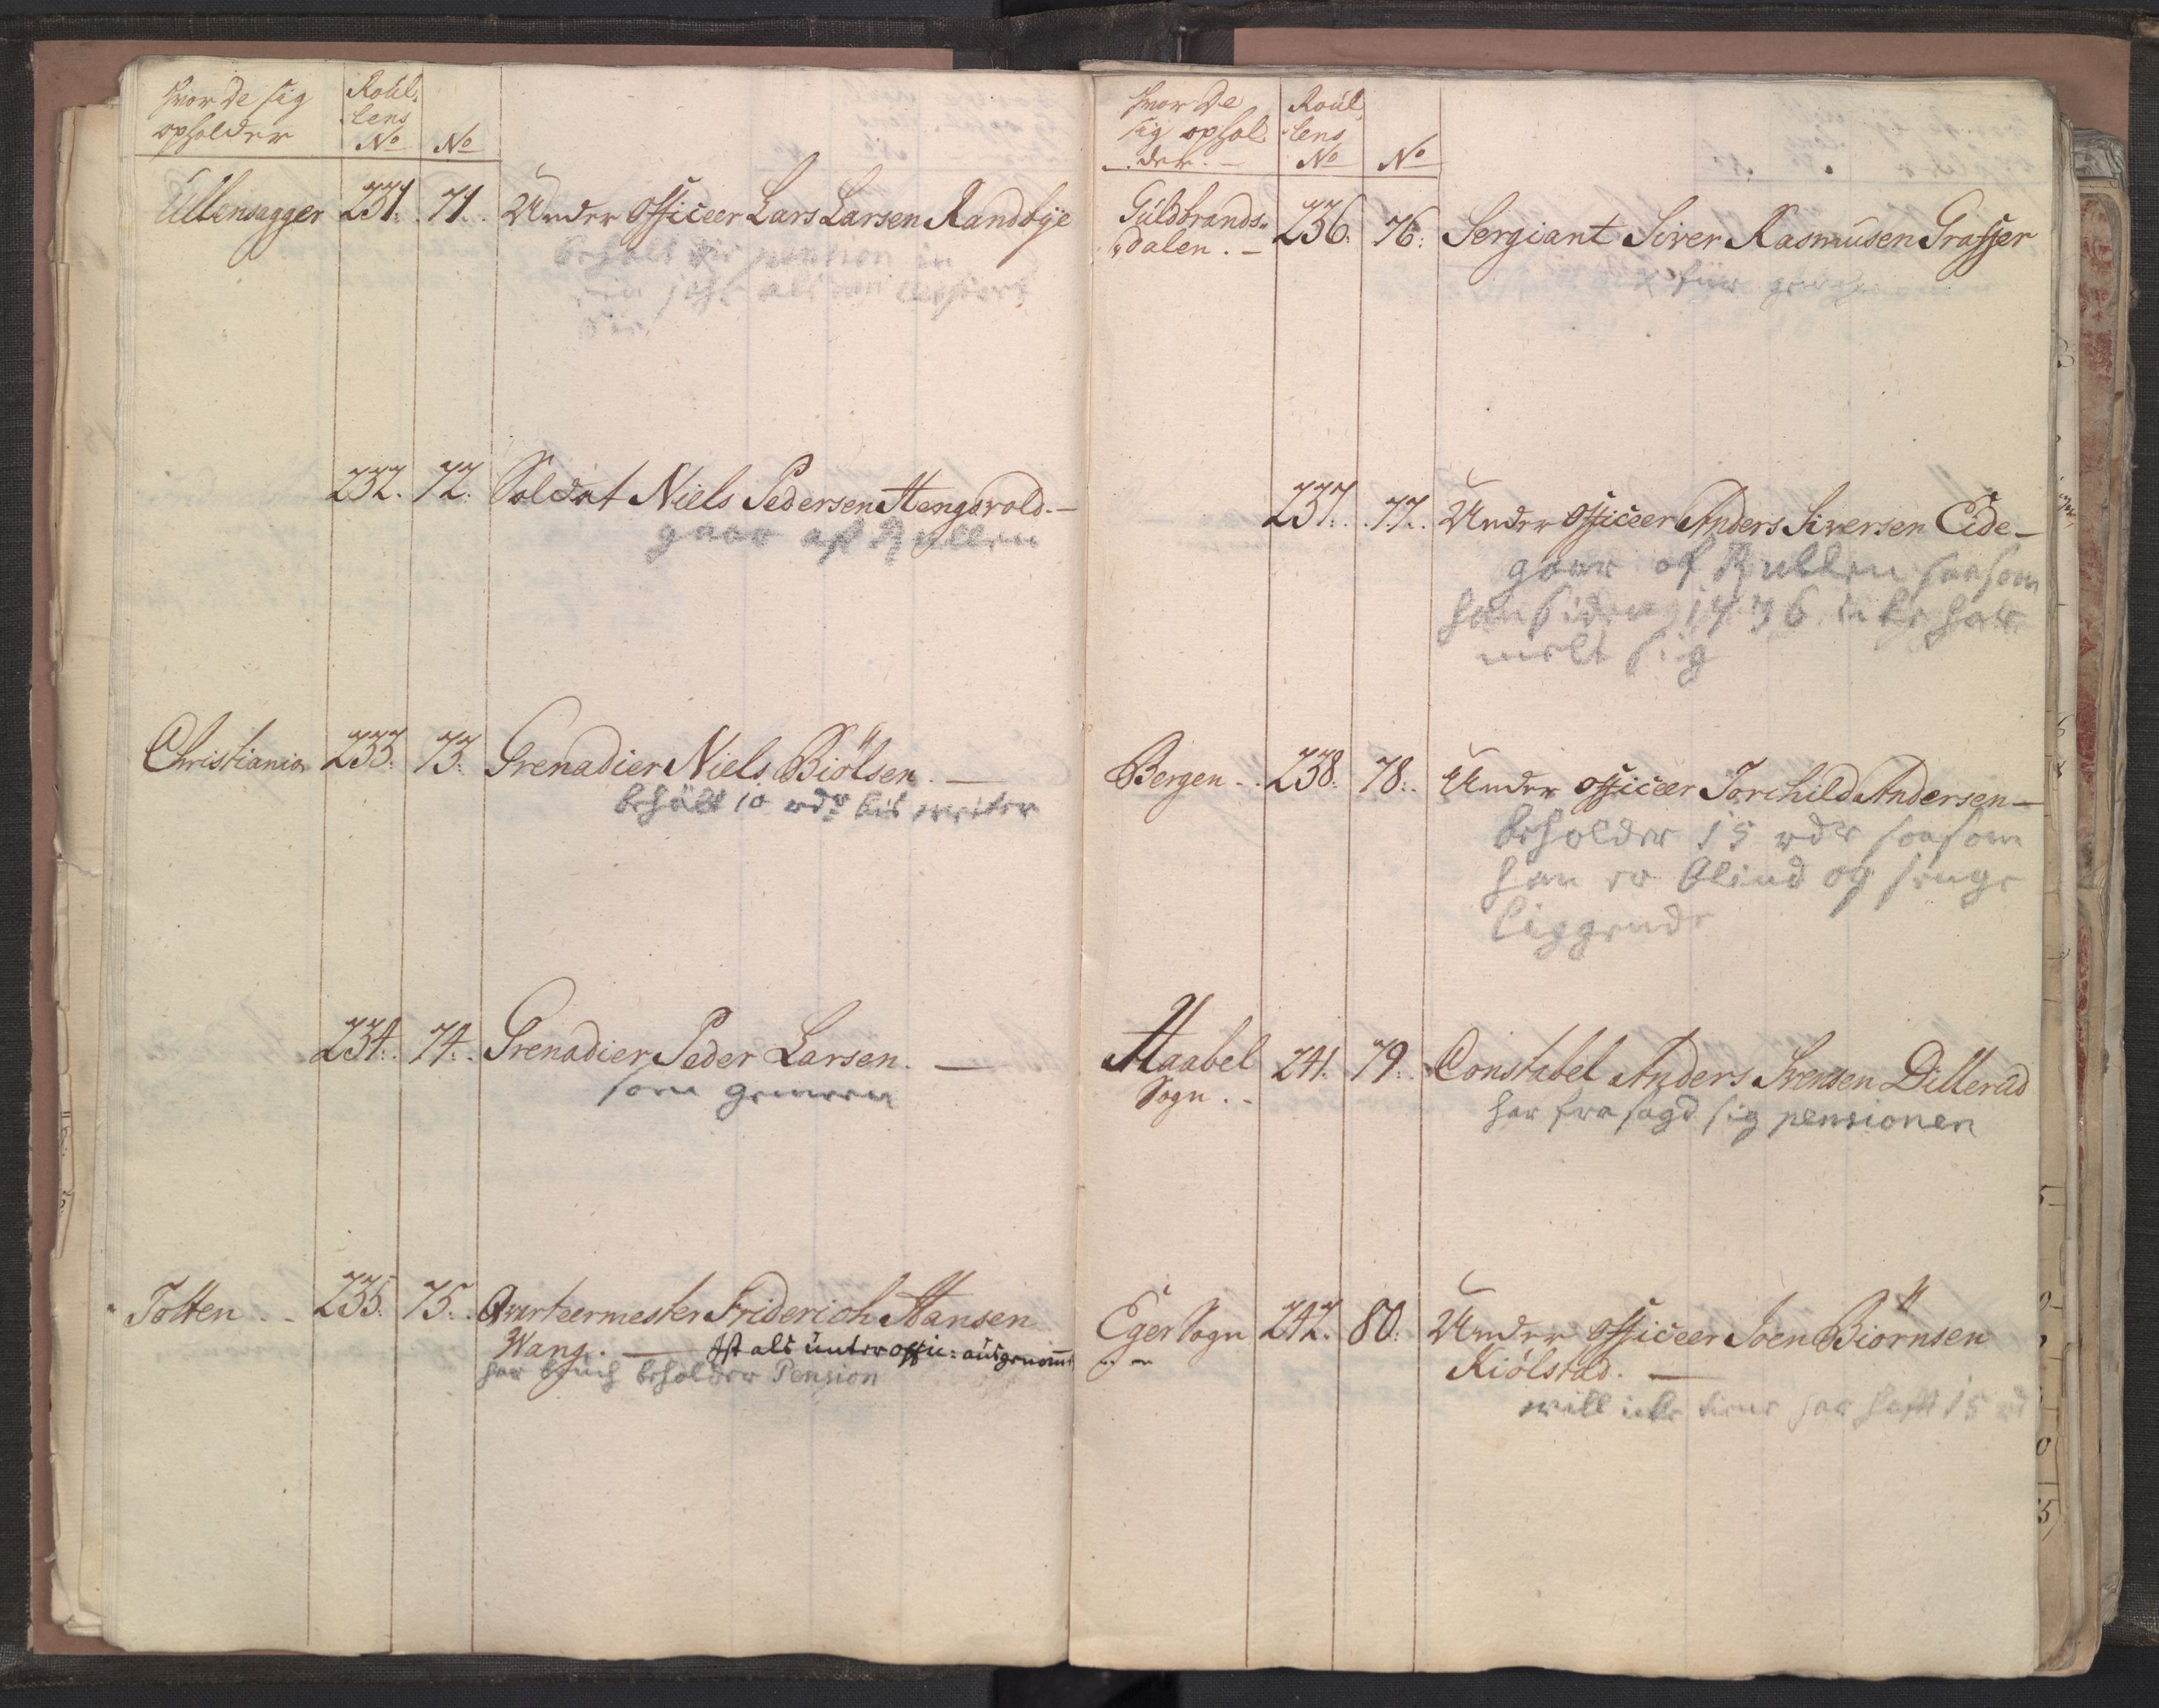 hvor de sig
opholder
Roül,
lens
No
No
Ullensagger 231. 71. Under Officeer Lars Larsen Randbÿe
behalt die pension
232. 72. Soldat Niels Pedersen Hengsvold. —
gaar af Rullen
Christiania 233. 73. Grenadier Niels Biölsen. —
behält 10 rdr bis weiter
234. 74. Grenadier Peder Larsen. —
som gemeen
Totten . . 235. 75. Qvarteermester Friderich Hansen
Wang. — Ist als ünter offic: aüsgenomen
har beholder Pension
hvor de
sig ophol-
der. —
Roül,
lens
No
No
Güldbrands-
dalen. — 236. 76. Sergiant Siver Rasmüsen Graffer
237. 77. Under Officeer Anders Siversen Eide —
gaar af Rullen saasom
han siden 1736 icke har
melt sig
Bergen . . 238. 78. Under Officeer Torchild Andersen —
beholder 15 rdr saasom
han er blind og senge
liggende
Haabel 241. 79. Constabel Anders Svensen Dillerüd
Sogn . -
har fra sagd sig pensionen
Eger Sogn 242. 80. Under Officeer Joen Biörnsen
Kiölstad. —
will icke tiene har hafft 15 rd